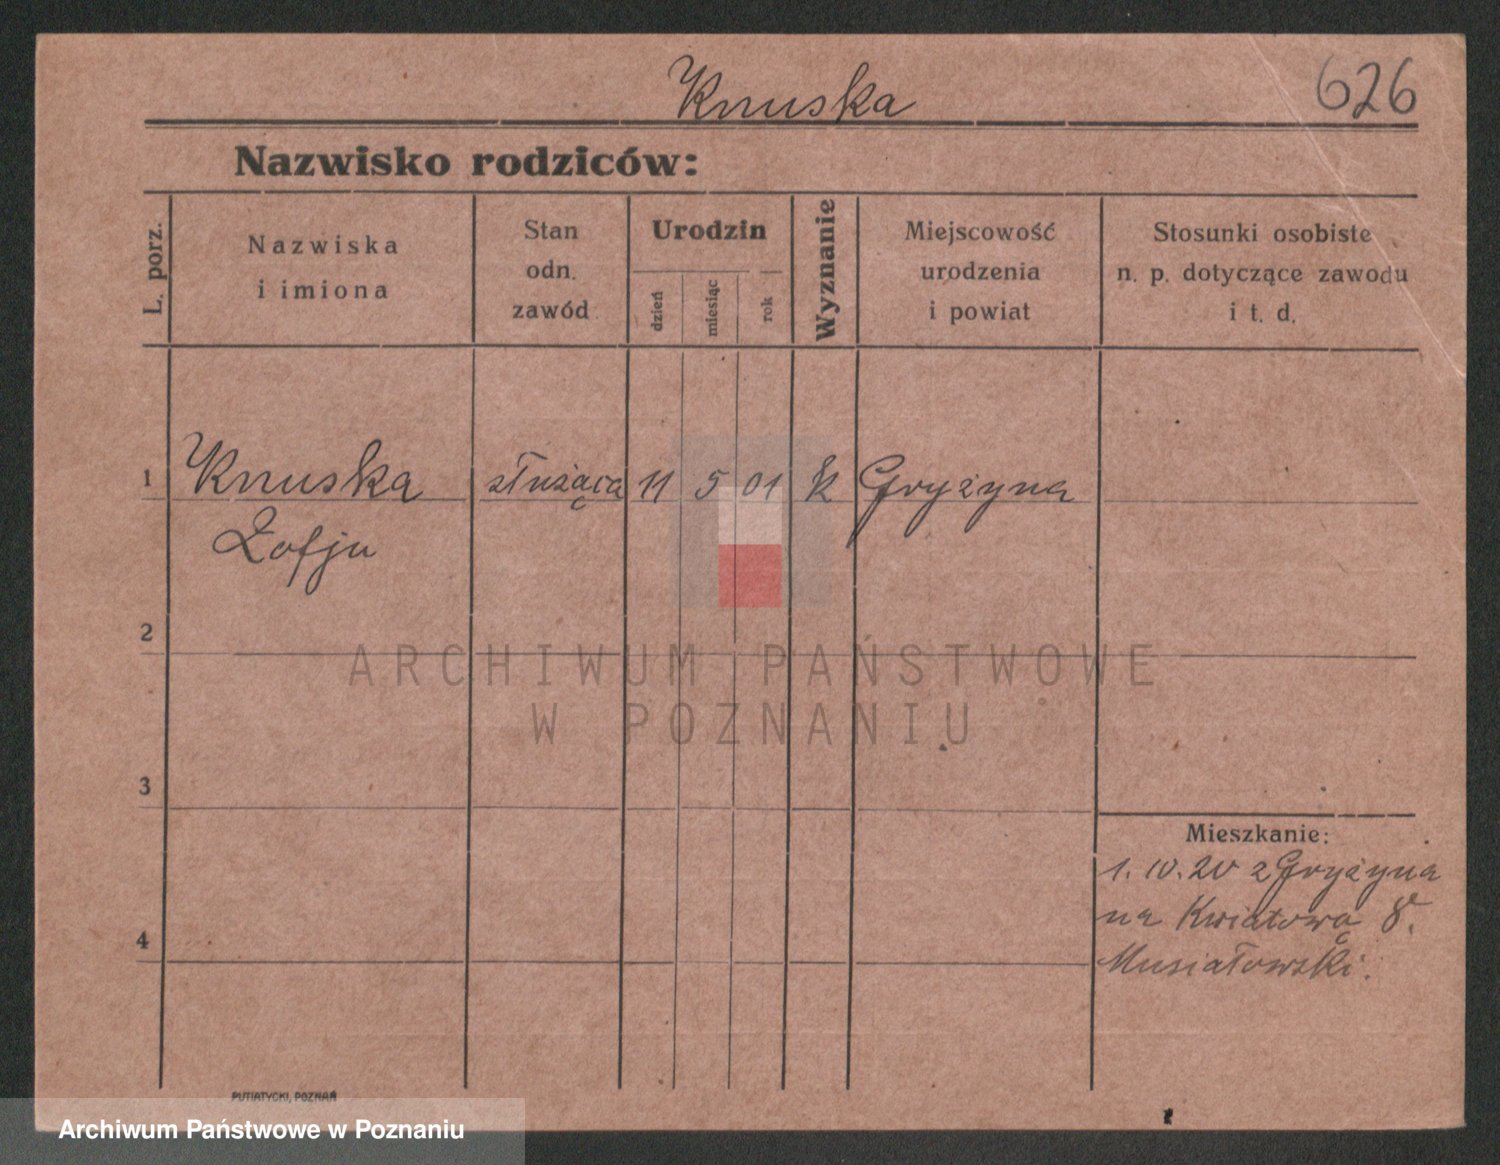 Knuska
626
Nazwisko rodziców:
L. porz.
Nazwiska
i imiona
Stan
odn.
zawód
Urodzin
dzień
miesiąc
rok
Wyznanie
Miejscowość
urodzenia
i powiat
Stosunki osobiste
n. p. dotyczące zawodu
i t. d.
1 Knuska służąca 11 5 01 k Gryżyna
Zofja
2
ARCHIWUM PAŃSTWOWE
W POZNANIU
3
Mieszkanie:
1. 10. 20 z Gryżyna
na Kwiatową 8.
4
Musiałowski.
PUTIATYCKI, POZNAŃ
Archiwum Państwowe w Poznaniu